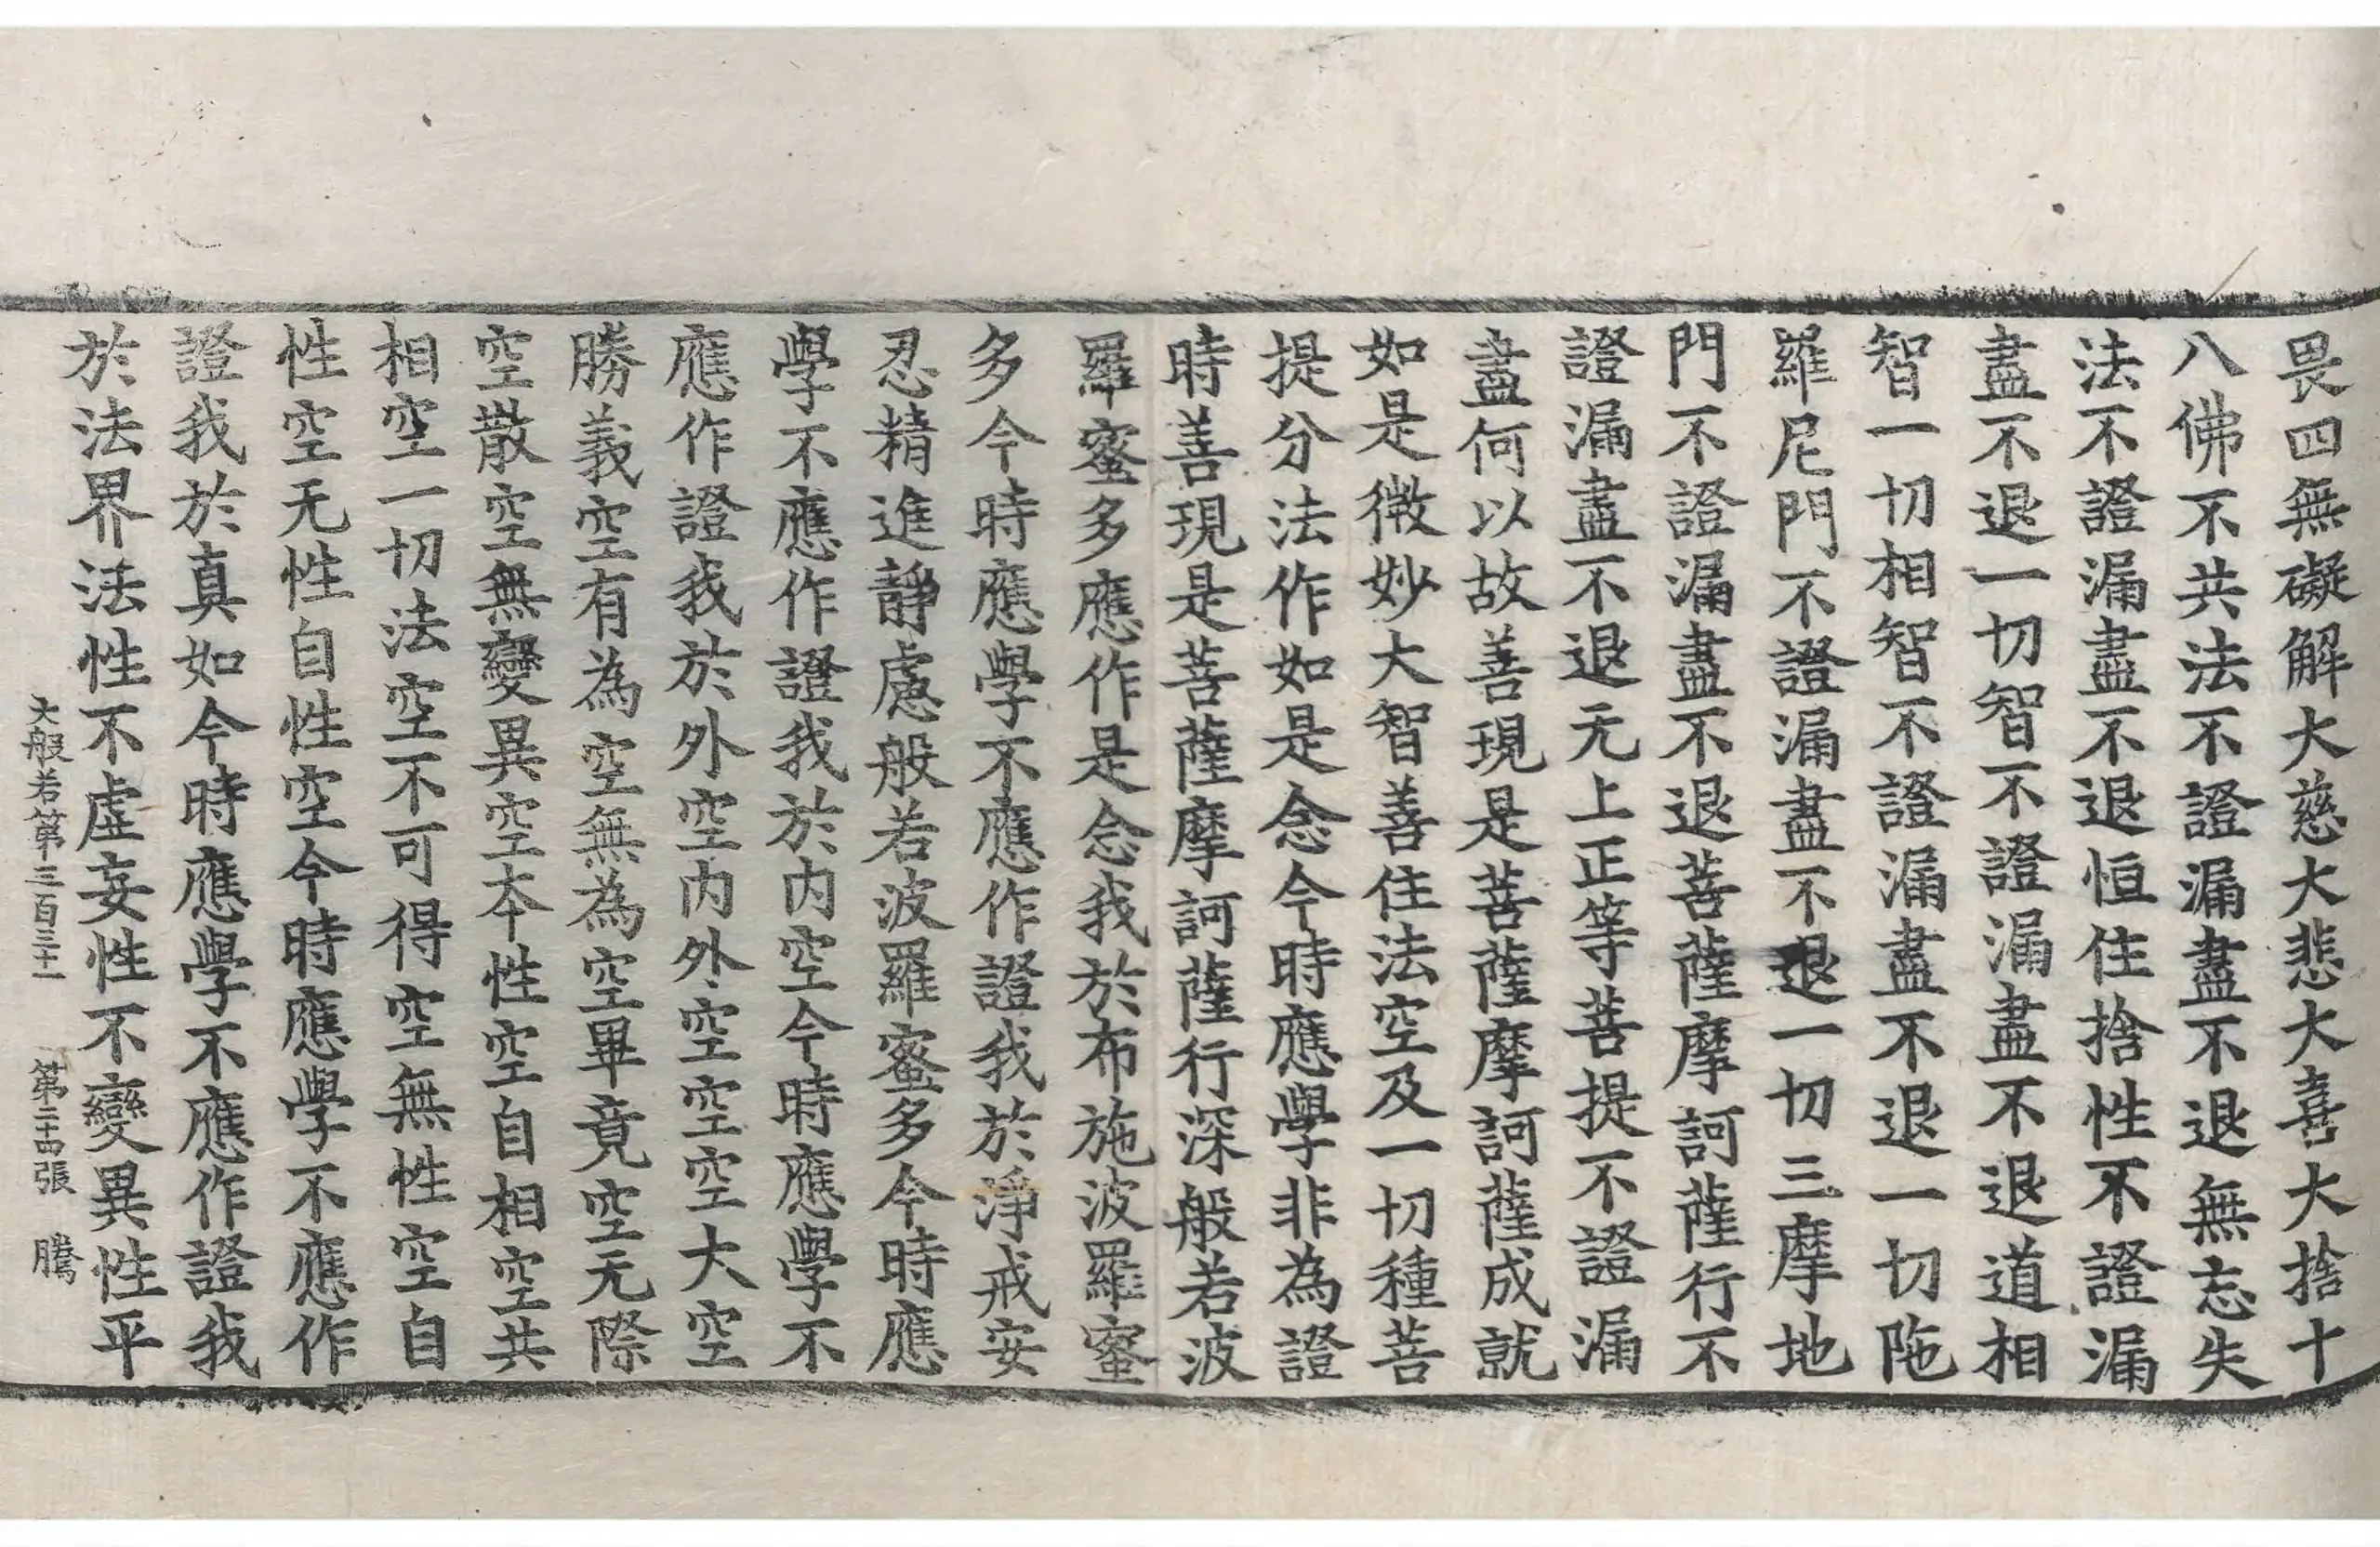 畏四無礙解大慈大悲大喜大捨十
八佛不共法不證漏盡不退無忘失
法不證漏盡不退恒住捨性不證漏
盡不退一切智不證漏盡不退道相
智一切相智不證漏盡不退一切陁
羅尼門不證漏盡不退一切三摩地
門不證漏盡不退菩薩摩訶薩行不
證漏盡不退无上正等菩提不證漏
盡何以故善現是菩薩摩訶薩成就
如是微妙大智善住法空及一切種菩
提分法作如是念今時應學非為證
時善現是菩薩摩訶薩行深般若波
羅蜜多應作是念我於布施波羅蜜
多今時應學不應作證我於淨戒安
忍精進靜慮般若波羅蜜多今時應
學不應作證我於内空今時應學不
應作證我於外空内外空空空大空
勝義空有為空無為空畢竟空无際
空散空無變異空本性空自相空共
相空一切法空不可得空無性空自
性空无性自性空今時應學不應作
證我於真如今時應學不應作證我
於法界法性不虛妄性不變異性平
大般若第三百三十一 第二十四張 騰